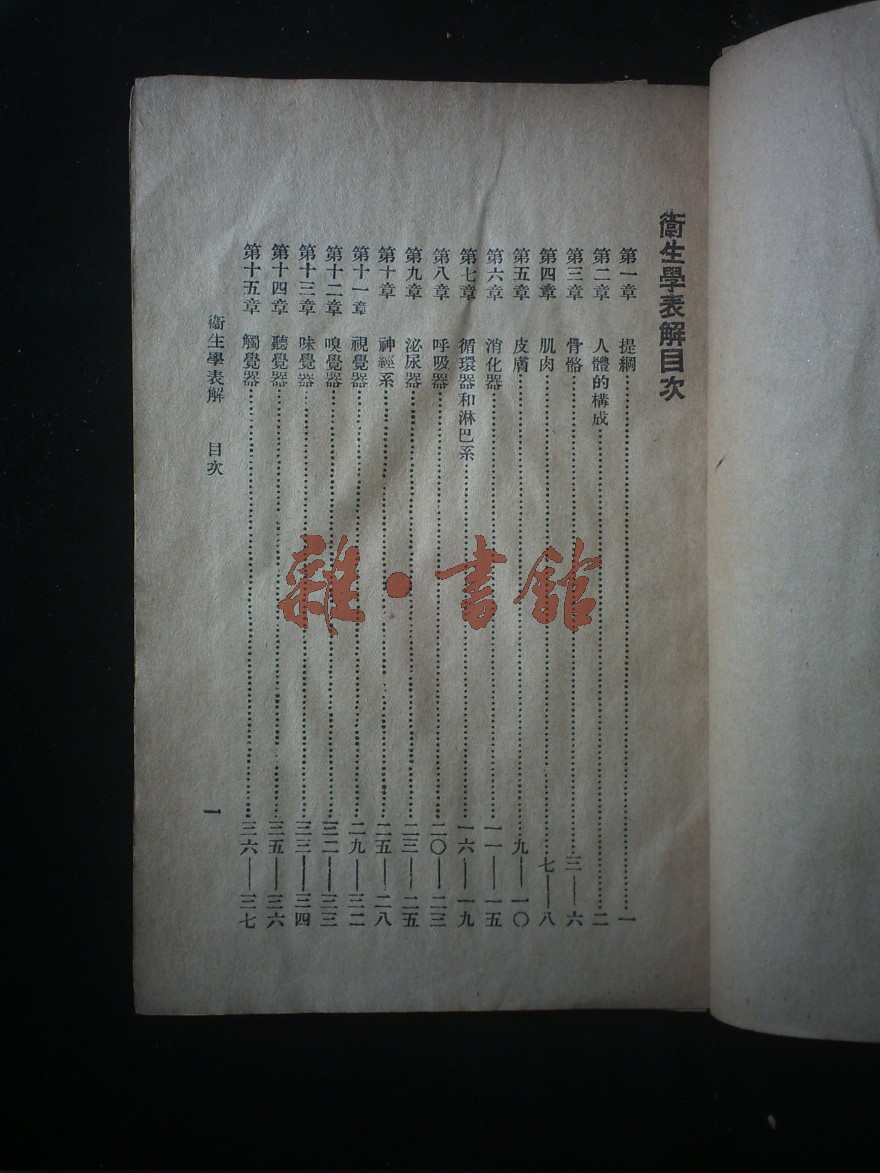 衞生學表解目次
第一章 提綱……一
第二章 人體的構成……二
第三章 骨骼……三——六
第四章 肌肉……七——八
第五章 皮膚……九——一〇
第六章 消化器……一一——一五
第七章 循環器和淋巴系……一六——一九
第八章 呼吸器……二〇——二三
第九章 泌尿器……二三——二五
第十章 神經系……二五——二八
第十一章 視覺器……二九——三二
第十二章 嗅覺器……三二——三三
第十三章 味覺器……三三——三四
第十四章 聽覺器……三五——三六
第十五章 觸覺器……三六——三七
衞生學表解 目次 一
雜·書館